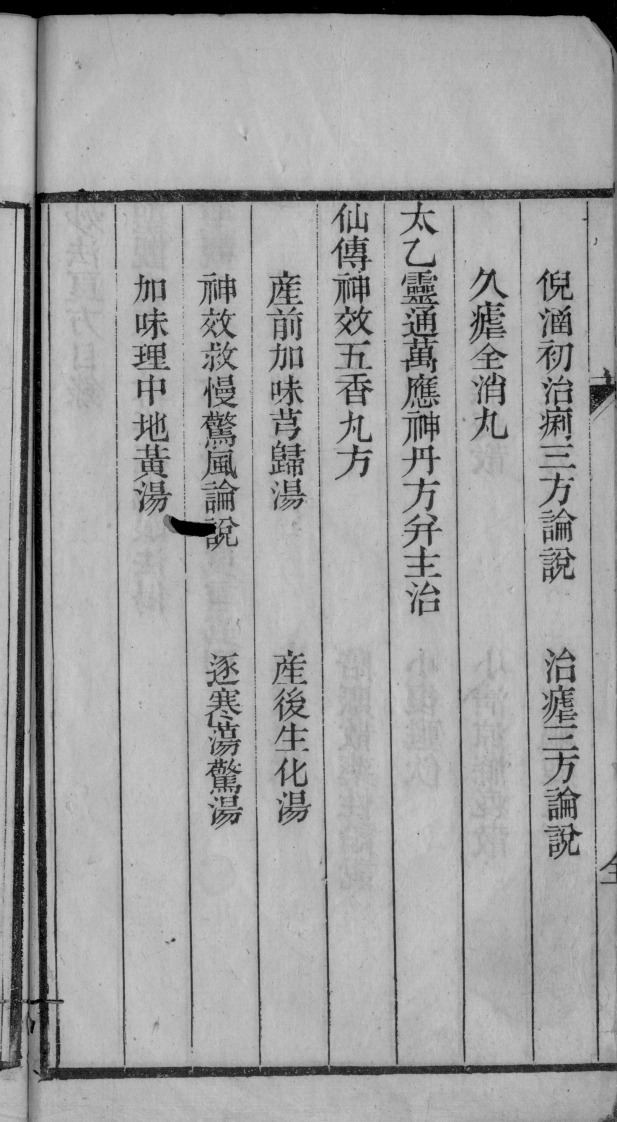 倪涵初治痢三方論說　治瘧三方論說
久瘧全消丸
太乙靈通萬應神丹方并主治
仙傳神效五香丸方
産前加味芎歸湯　産後生化湯
神效救慢驚風論說　逐寒蕩驚湯
加味理中地黃湯
全